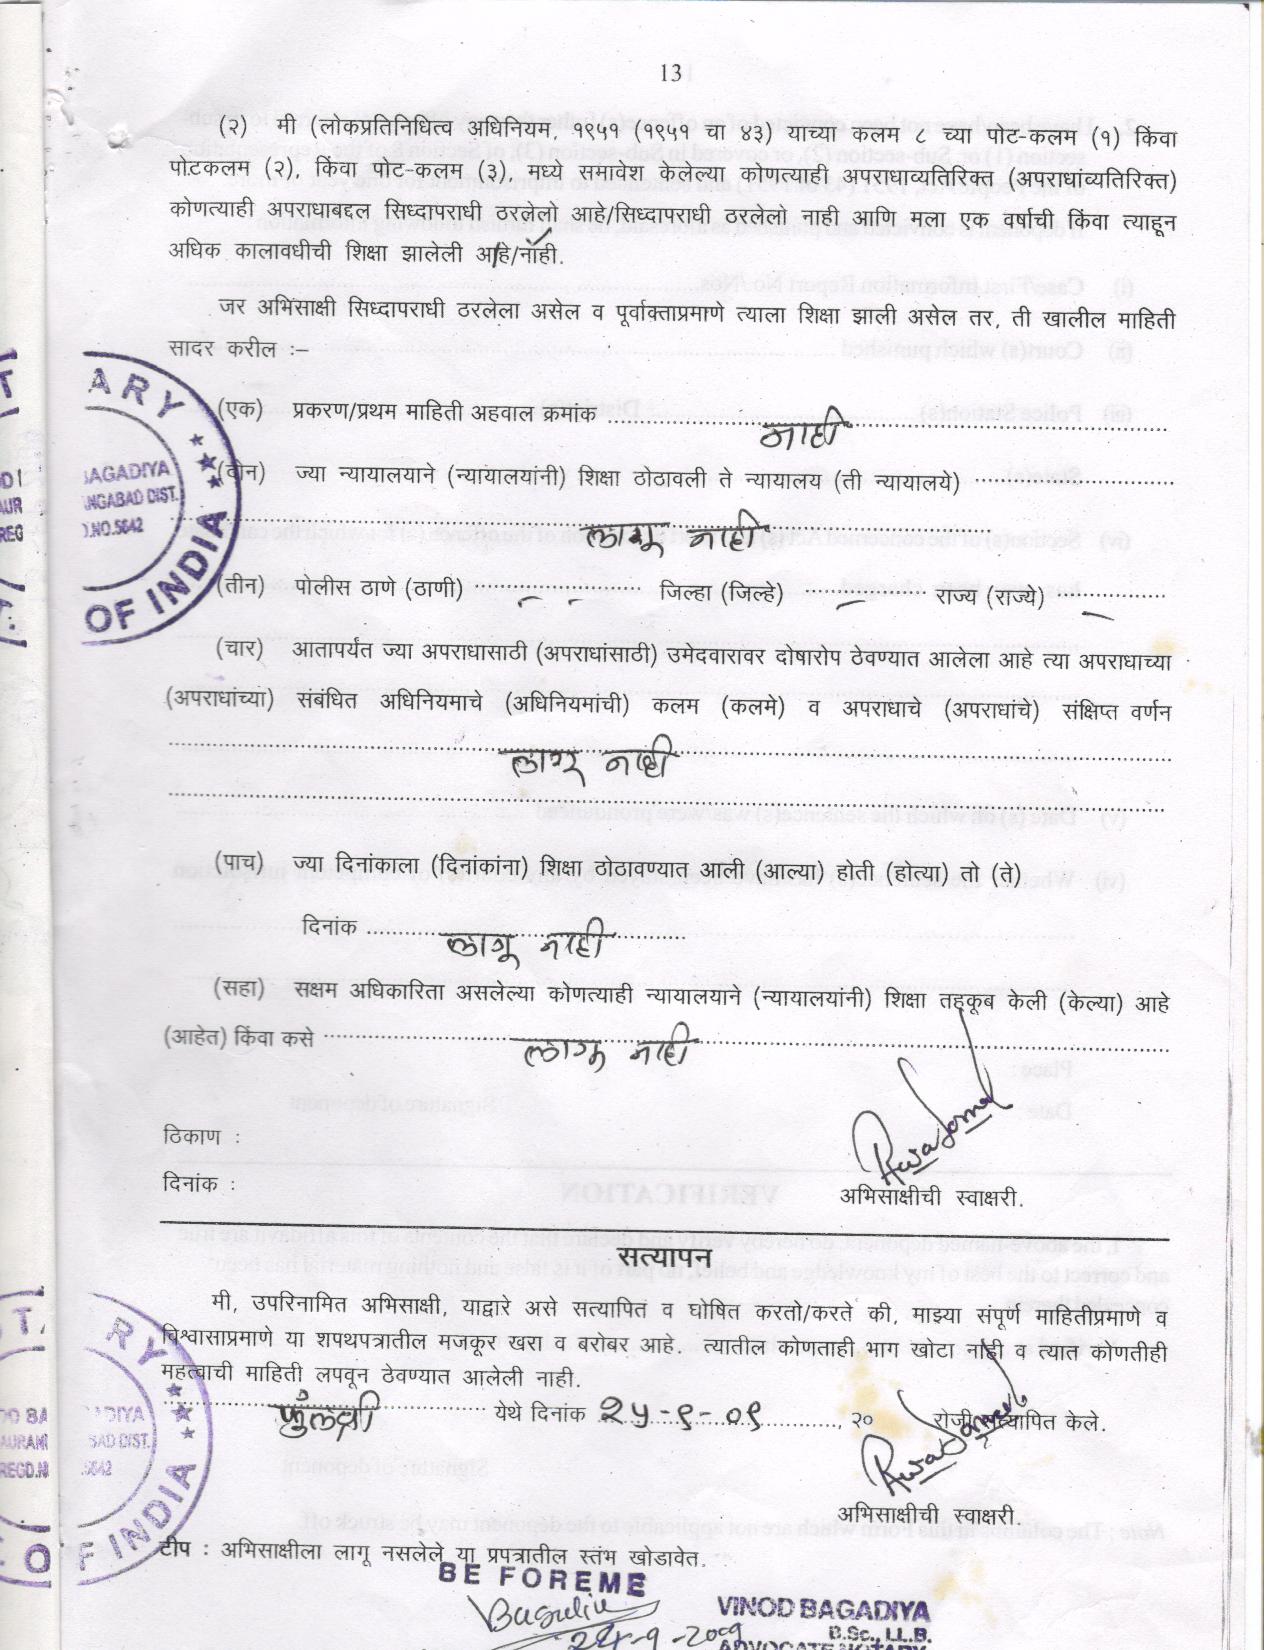 13
(२) मी (लोकप्रतिनिधित्व अधिनियम, १९५१ (१९५१ चा ४३) याच्या कलम ८ च्या पोट-कलम (१) किंवा
पोटकलम (२), किंवा पोट-कलम (३), मध्ये समावेश केलेल्या कोणत्याही अपराधाव्यतिरिक्त (अपराधांव्यतिरिक्त)
कोणत्याही अपराधाबद्दल सिध्दापराधी ठरलेलो आहे/सिध्दापराधी ठरलेलो नाही आणि मला एक वर्षाची किंवा त्याहून
अधिक कालावधीची शिक्षा झालेली आहे/नाही.
जर अभिसाक्षी सिध्दापराधी ठरलेला असेल व पूर्वोक्ताप्रमाणे त्याला शिक्षा झाली असेल तर, ती खालील माहिती
सादर करील :–
(एक) प्रकरण/प्रथम माहिती अहवाल क्रमांक नाही
(दोन) ज्या न्यायालयाने (न्यायालयांनी) शिक्षा ठोठावली ते न्यायालय (ती न्यायालये)
लागू नाही
(तीन) पोलीस ठाणे (ठाणी) – – जिल्हा (जिल्हे) – राज्य (राज्ये) –
(चार) आतापर्यंत ज्या अपराधासाठी (अपराधांसाठी) उमेदवारावर दोषारोप ठेवण्यात आलेला आहे त्या अपराधाच्या
(अपराधांच्या) संबंधित अधिनियमाचे (अधिनियमांची) कलम (कलमे) व अपराधाचे (अपराधांचे) संक्षिप्त वर्णन
लागू नाही
(पाच) ज्या दिनांकाला (दिनांकांना) शिक्षा ठोठावण्यात आली (आल्या) होती (होत्या) तो (ते)
दिनांक लागू नाही
(सहा) सक्षम अधिकारिता असलेल्या कोणत्याही न्यायालयाने (न्यायालयांनी) शिक्षा तहकूब केली (केल्या) आहे
(आहेत) किंवा कसे लागू नाही
ठिकाण :
दिनांक :
अभिसाक्षीची स्वाक्षरी.
सत्यापन
मी, उपरिनामित अभिसाक्षी, याद्वारे असे सत्यापित व घोषित करतो/करते की, माझ्या संपूर्ण माहितीप्रमाणे व
विश्वासाप्रमाणे या शपथपत्रातील मजकूर खरा व बरोबर आहे. त्यातील कोणताही भाग खोटा नाही व त्यात कोणतीही
महत्वाची माहिती लपवून ठेवण्यात आलेली नाही.
येथे दिनांक २५-९-०९, २० रोजी सत्यापित केले.
अभिसाक्षीची स्वाक्षरी.
टीप : अभिसाक्षीला लागू नसलेले या प्रपत्रातील स्तंभ खोडावेत.
BE FOREME
VINOD BAGADIYA
B.Sc., LL.B.
ADVOCATE NOTARY
ARY
BAGADIYA
NGABAD DIST.
NO.5642
OF INDIA
RY
ADIYA
BAD DIST.
5642
OF INDIA